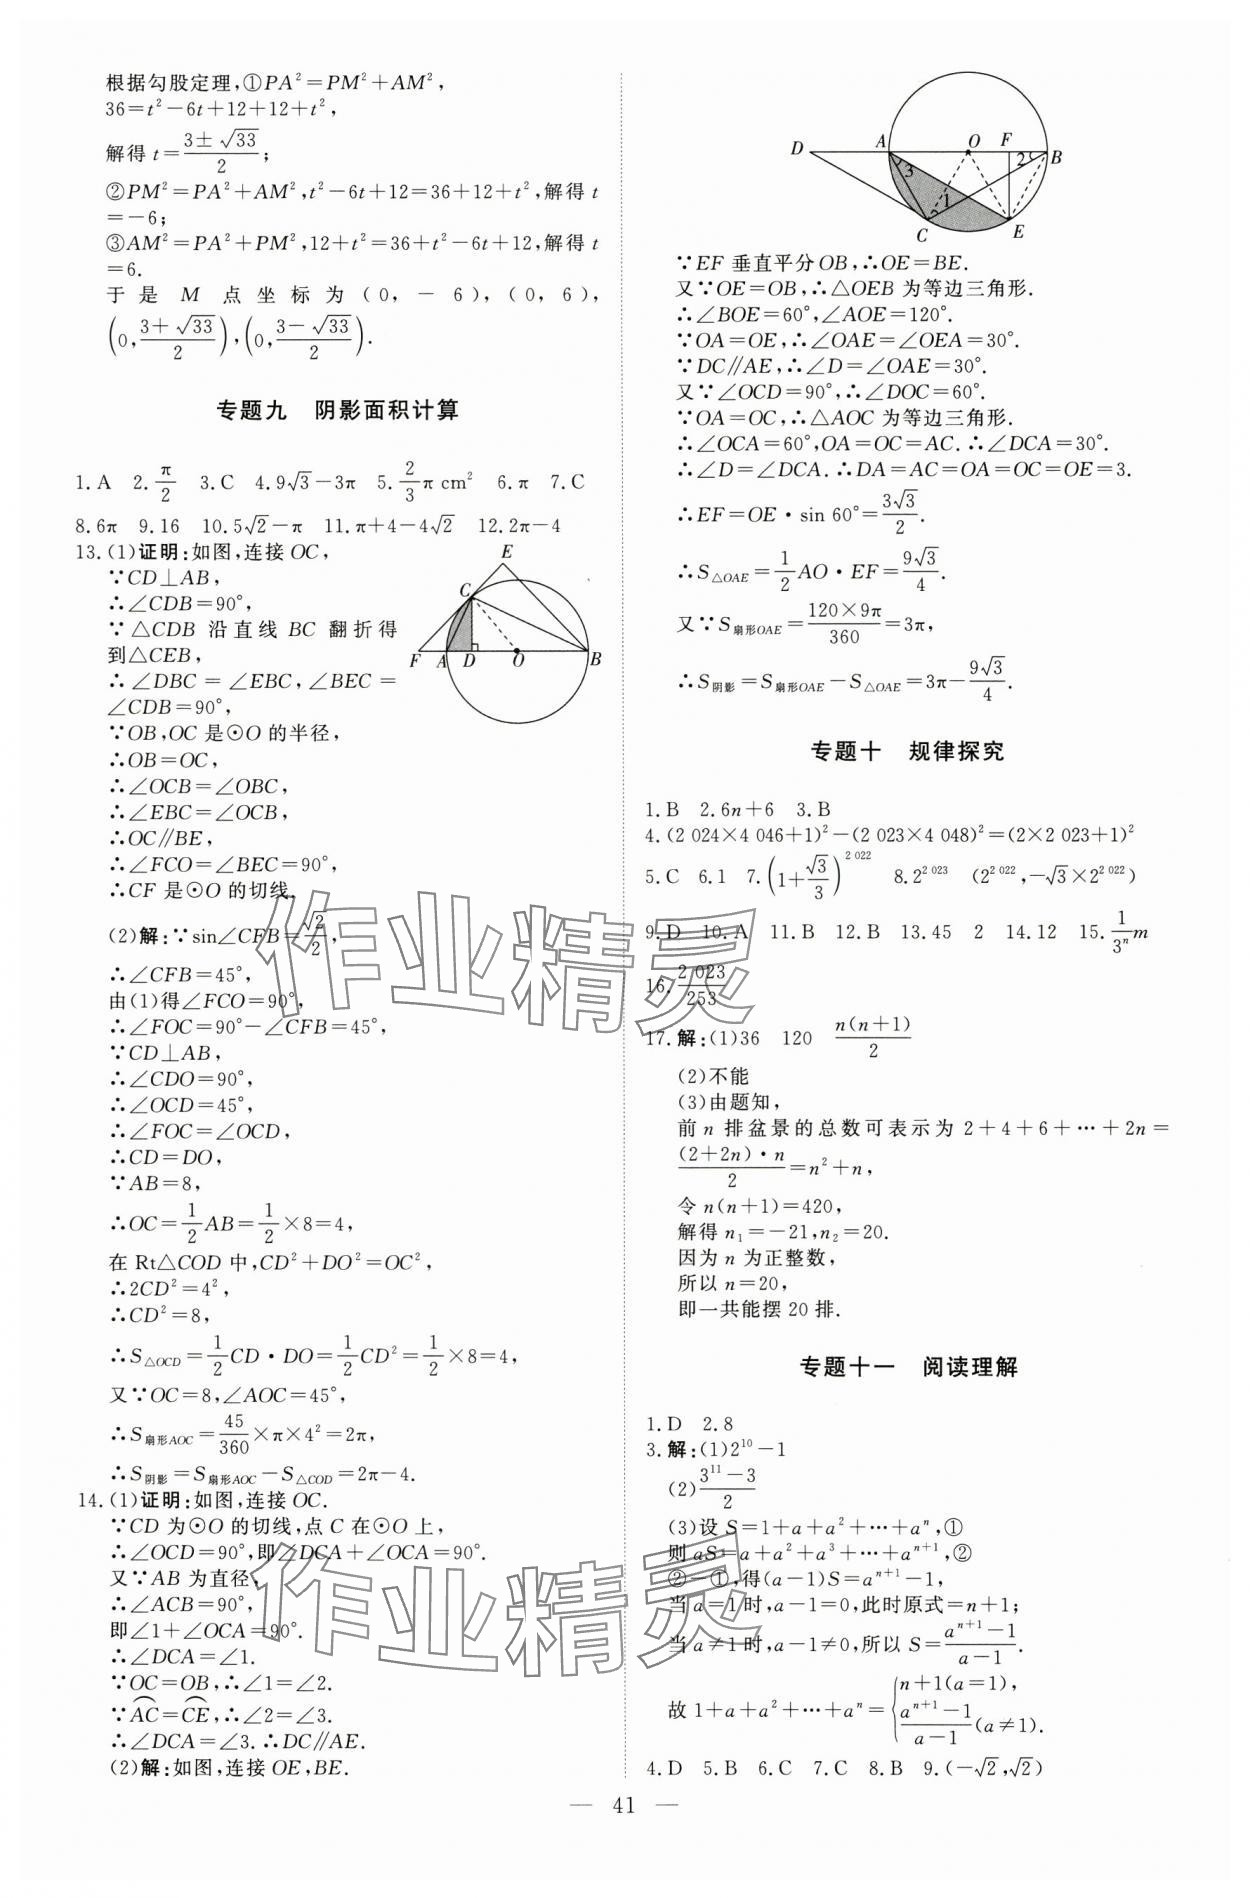 根据勾股定理,①PA²=PM²+AM²,
36=t²-6t+12+12+t²,
解得 t=(3±√33)/2;
②PM²=PA²+AM²,t²-6t+12=36+12+t²,解得 t
=-6;
③AM²=PA²+PM²,12+t²=36+t²-6t+12,解得 t
=6.
于是 M 点坐标为(0,-6),(0,6),
(0,(3+√33)/2),(0,(3-√33)/2).
专题九 阴影面积计算
1.A 2.π/2 3.C 4.9√3-3π 5.2/3 π cm² 6.π 7.C
8.6π 9.16 10.5√2-π 11.π+4-4√2 12.2π-4
13.(1)证明:如图,连接 OC,
∵CD⊥AB,
∴∠CDB=90°,
∵△CDB 沿直线 BC 翻折得
到△CEB,
∴∠DBC=∠EBC,∠BEC=
∠CDB=90°,
∵OB,OC 是⊙O 的半径,
∴OB=OC,
∴∠OCB=∠OBC,
∴∠EBC=∠OCB,
∴OC∥BE,
∴∠FCO=∠BEC=90°,
∴CF 是⊙O 的切线.
E
C
F A D O B
(2)解:∵sin∠CFB=√2/2,
∴∠CFB=45°,
由(1)得∠FCO=90°,
∴∠FOC=90°-∠CFB=45°,
∵CD⊥AB,
∴∠CDO=90°,
∴∠OCD=45°,
∴∠FOC=∠OCD,
∴CD=DO,
∵AB=8,
∴OC=1/2 AB=1/2×8=4,
在 Rt△COD 中,CD²+DO²=OC²,
∴2CD²=4²,
∴CD²=8,
∴S△OCD=1/2 CD·DO=1/2 CD²=1/2×8=4,
又∵OC=8,∠AOC=45°,
∴S扇形AOC=45/360×π×4²=2π,
∴S阴影=S扇形AOC-S△COD=2π-4.
14.(1)证明:如图,连接 OC.
∵CD 为⊙O 的切线,点 C 在⊙O 上,
∴∠OCD=90°,即∠DCA+∠OCA=90°.
又∵AB 为直径,
∴∠ACB=90°,
即∠1+∠OCA=90°.
∴∠DCA=∠1.
∵OC=OB,∴∠1=∠2.
∵A͡C=C͡E,∴∠2=∠3.
∴∠DCA=∠3.∴DC∥AE.
(2)解:如图,连接 OE,BE.
D A O F B
3 2
1
C E
∵EF 垂直平分 OB,∴OE=BE.
又∵OE=OB,∴△OEB 为等边三角形.
∴∠BOE=60°,∠AOE=120°.
∵OA=OE,∴∠OAE=∠OEA=30°.
∵DC∥AE,∴∠D=∠OAE=30°.
又∵∠OCD=90°,∴∠DOC=60°.
∵OA=OC,∴△AOC 为等边三角形.
∴∠OCA=60°,OA=OC=AC.∴∠DCA=30°.
∴∠D=∠DCA.∴DA=AC=OA=OC=OE=3.
∴EF=OE·sin 60°=3√3/2.
∴S△OAE=1/2 AO·EF=9√3/4.
又∵S扇形OAE=(120×9π)/360=3π,
∴S阴影=S扇形OAE-S△OAE=3π-9√3/4.
专题十 规律探究
1.B 2.6n+6 3.B
4.(2 024×4 046+1)²-(2 023×4 048)²=(2×2 023+1)²
5.C 6.1 7.(1+√3/3)^2 022 8.2^2 023 (2^2 022,-√3×2^2 022)
9.D 10.A 11.B 12.B 13.45 2 14.12 15.1/3ⁿ m
16.2 023/253
17.解:(1)36 120 n(n+1)/2
(2)不能
(3)由题知,
前 n 排盆景的总数可表示为 2+4+6+…+2n=
(2+2n)·n/2=n²+n,
令 n(n+1)=420,
解得 n₁=-21,n₂=20.
因为 n 为正整数,
所以 n=20,
即一共能摆 20 排.
专题十一 阅读理解
1.D 2.8
3.解:(1)2¹⁰-1
(2)(3¹¹-3)/2
(3)设 S=1+a+a²+…+aⁿ,①
则 aS=a+a²+a³+…+aⁿ⁺¹,②
②-①,得(a-1)S=aⁿ⁺¹-1,
当 a=1时,a-1=0,此时原式=n+1;
当 a≠1时,a-1≠0,所以 S=(aⁿ⁺¹-1)/(a-1).
故 1+a+a²+…+aⁿ={n+1(a=1), (aⁿ⁺¹-1)/(a-1)(a≠1).
4.D 5.B 6.C 7.C 8.B 9.(-√2,√2)
— 41 —
作业精灵
作业精灵